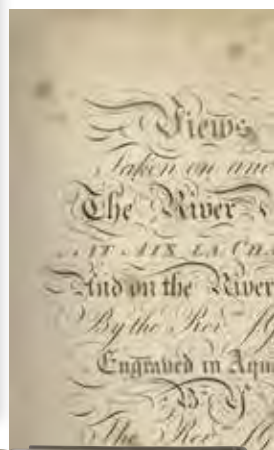 Views
Taken on and
The River
AT AIX LA CHA
And on the River
By the Revd. 
Engraved in Aqua
By
The Rev